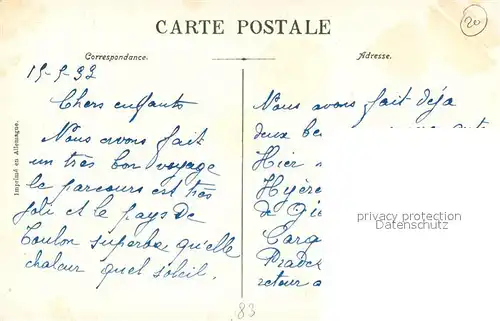 CARTE POSTALE
20
Correspondance.
Adresse.
15-9-32
Chers enfants
Nous avons fait
un très bon voyage
le parcours est très
joli et le pays de
Toulon superbe qu'elle
chaleur quel soleil.
Nous avons fait déjà
deux be
Hier
Hyère
de Gie
Carq
Prade
retour a
privacy protection
Datenschutz
Imprimé en Allemagne.
83